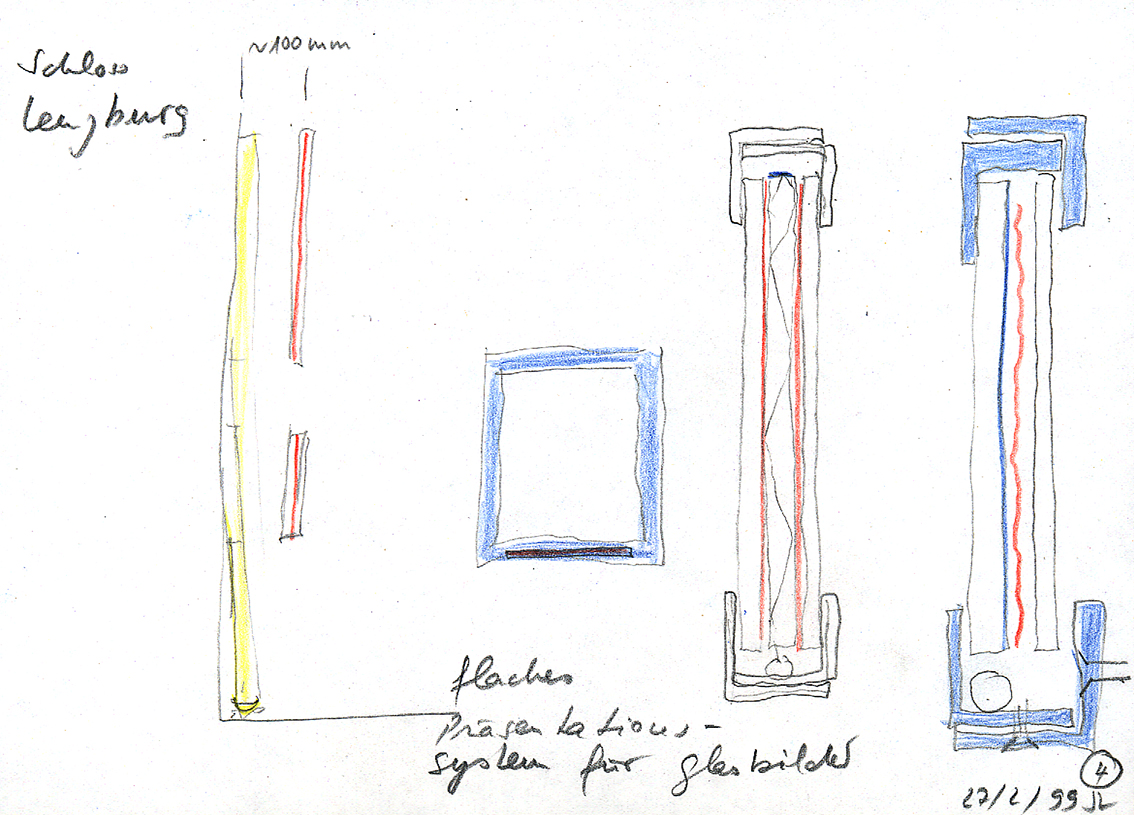 Schloss
Lenzburg
~100mm
flaches
Präsentations-
system für glasbilder
4
27/2/99 JL